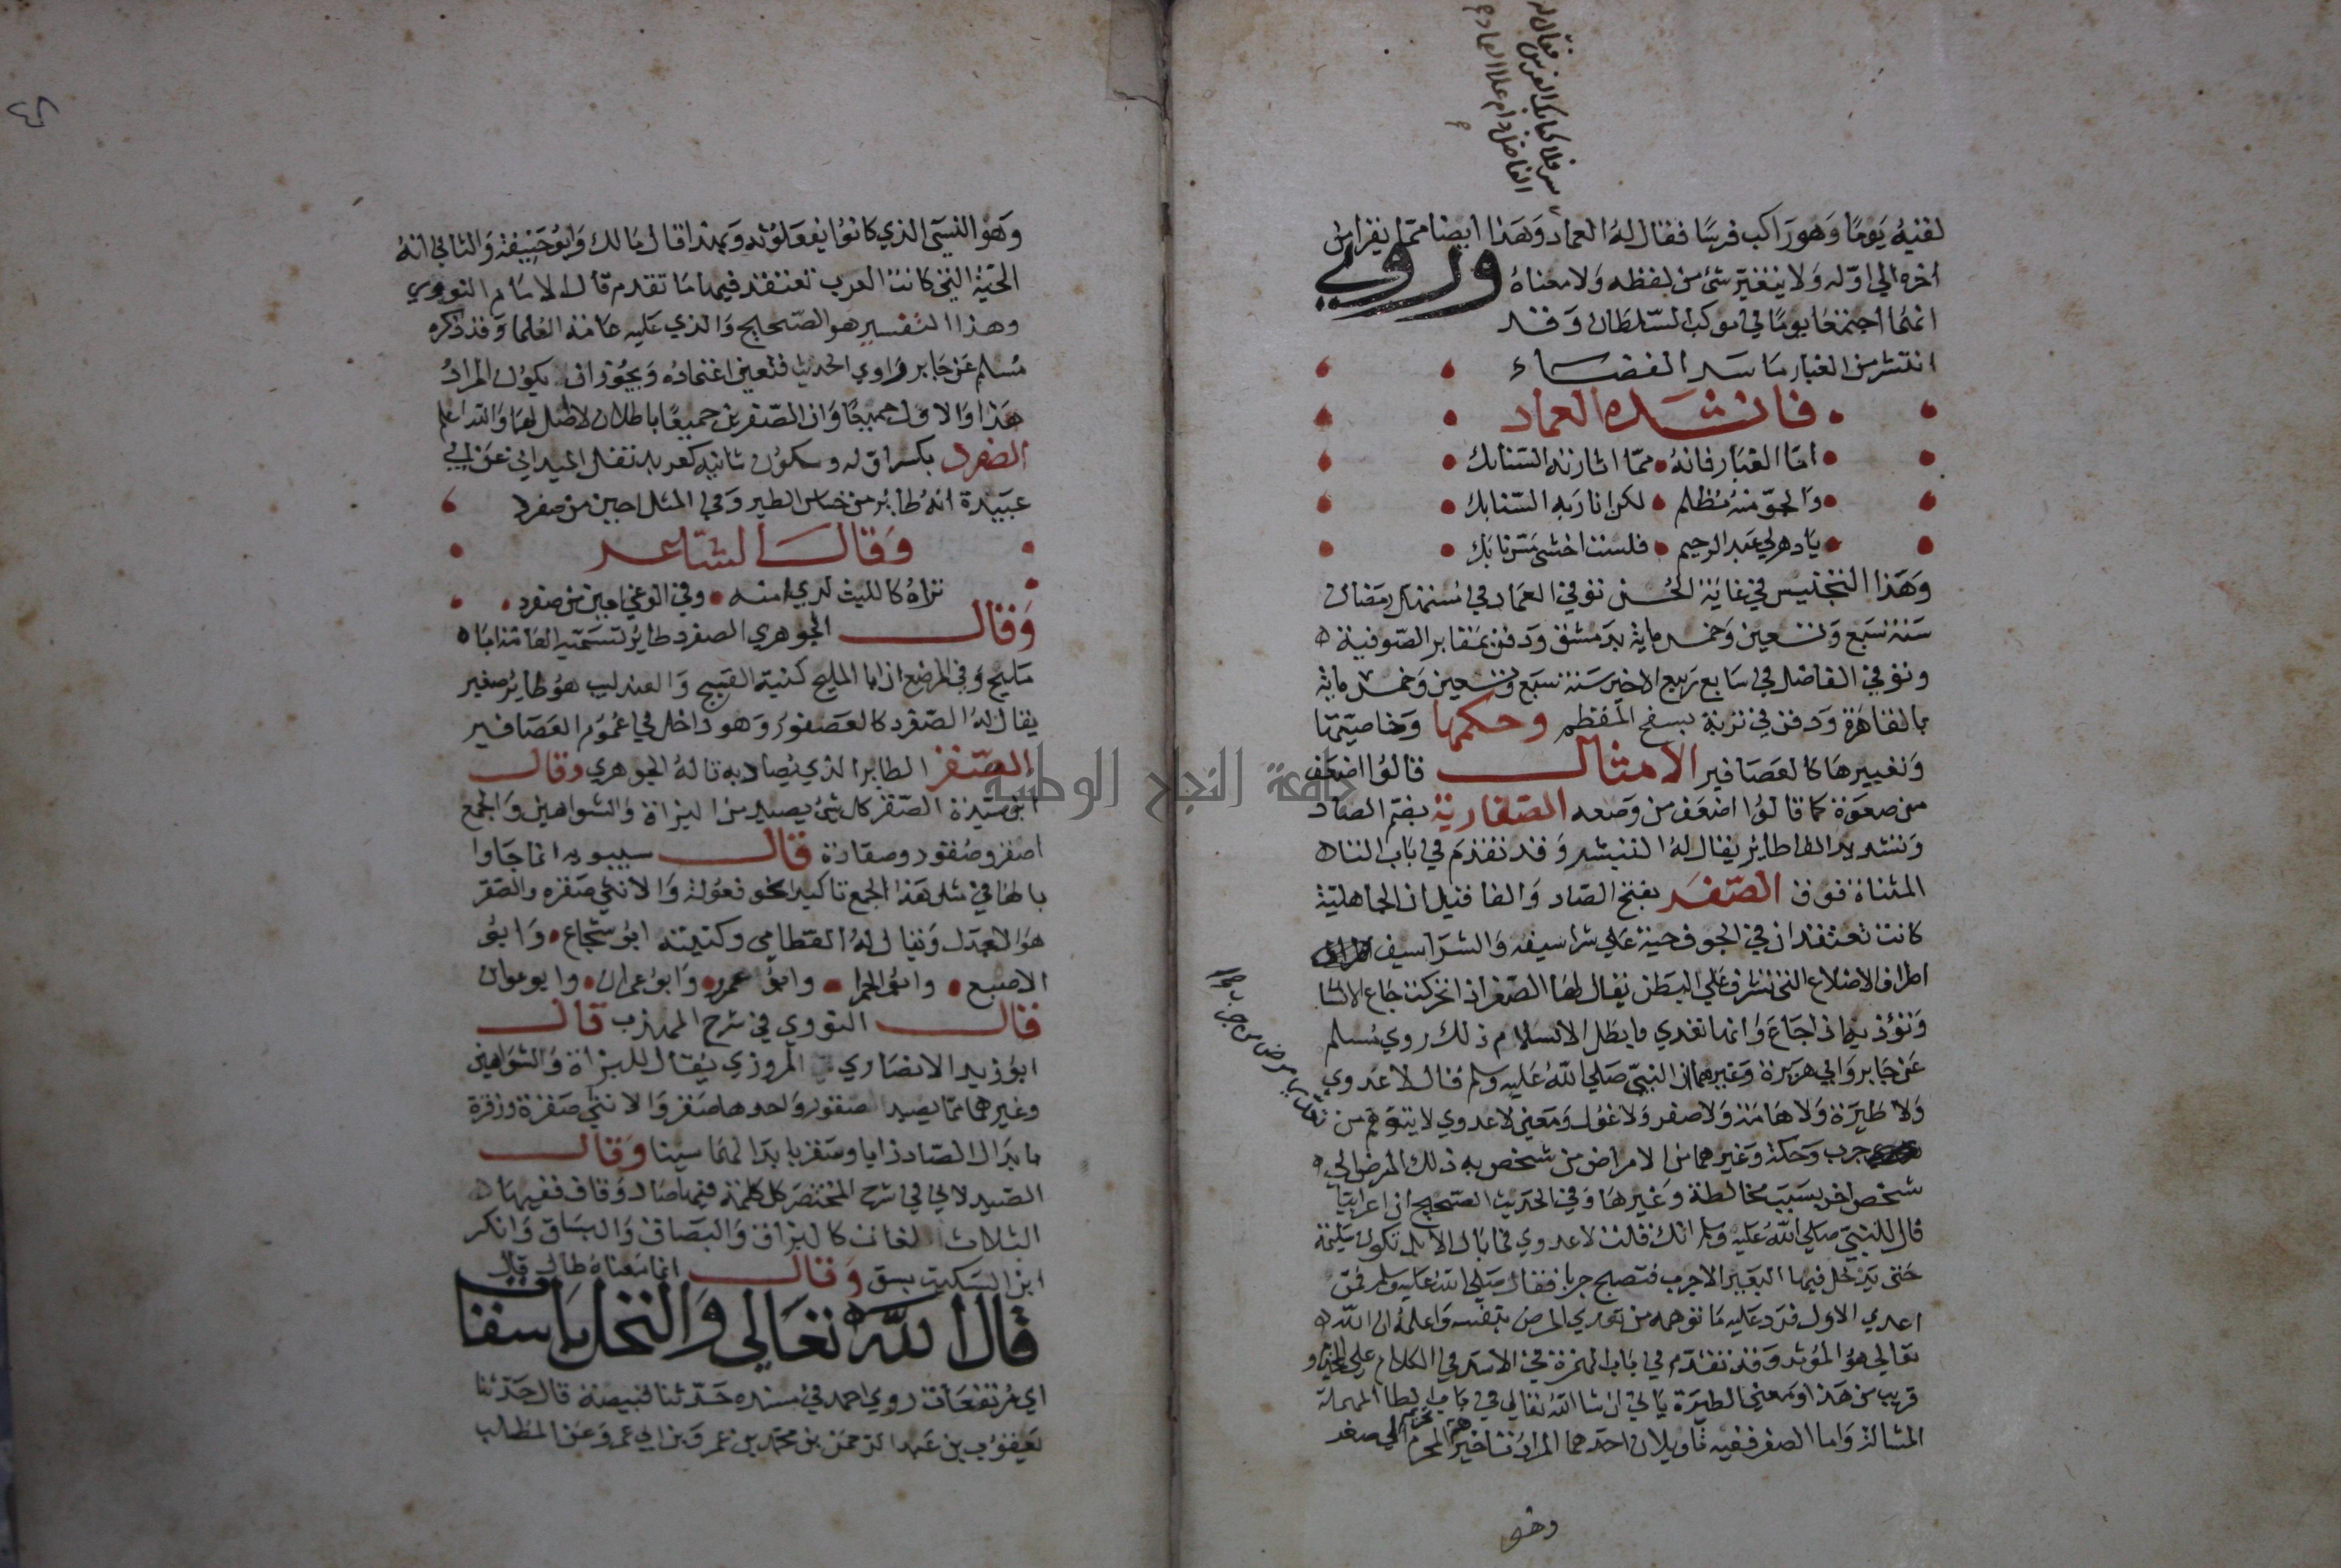 سر فلا كبا بك الفرس فقال له
الفاضل دام علا العماد
لقيه يوما وهو راكب فرسا فقال له العماد وهذا ايضا مما يقرا من
اخره الي اوله ولا يتغير شئ من لفظه ولا معناه وروي
انهما اجتمعا يوما في موكب السلطان وقد
انتشر من الغبار ما سد الفضاء
فانشده العماد
اما الغبار فانه مما اثارته السنابك
والجو منه مظلم لكن انار به السنابك
يا دهر لي عبد الرحيم فلست اخشي مس نابك
وهذا التجنيس في غاية الحسن توفي العماد في مستهل رمضان
سنة سبع وتسعين وخمسماية بدمشق ودفن بمقابر الصوفية
وتوفي الفاضل في سابع ربيع الاخر سنة سبع وتسعين وخمسماية
بالقاهرة ودفن في تربة بسفح المقطم وحكمها وخاصيتها
وتعبيرها كالعصافير الامثال قالوا اضعف
من صعوة كما قالوا اضعف من وصعه الصفارية بضم الصاد
وتشديد الفا طائر يقال له التبشر وقد تقدم في باب التاء
المثناة فوق الصفر بفتح الصاد والفا قيل ان الجاهلية
كانت تعتقد ان في الجوف حية علي شراسيفه والشراسيف
اطراف الاضلاع التي تشرف علي البطن يقال لها الصفر اذا تحركت جاع الانسان
وتؤذيه اذا جاع وانها تعدي فابطل الاسلام ذلك روي مسلم
عن جابر وابي هريرة وغيرهما ان النبي صلي الله عليه وسلم قال لا عدوي
ولا طيرة ولا هامة ولا صفر ولا غول ومعني لا عدوي لا يتوهم من
جرب وحكة وغيرهما من الامراض من شخص به ذلك المرض الي
شخص اخر بسبب مخالطة وغيرها وفي الحديث الصحيح ان اعرابيا
قال للنبي صلي الله عليه وسلم انك قلت لا عدوي فما بال الابل تكون سليمة
حتي يدخل فيها البعير الاجرب فتصبح جربا فقال صلي الله عليه وسلم فمن
اعدي الاول فرد عليه ما توهمه من تعدي المرض بنفسه واعلمه ان الله
تعالي هو المؤثر وقد تقدم في باب الهمزة في الاسد في الكلام علي المجذوم
قريب من هذا ومعني الطيرة ياتي ان شا الله تعالي في باب الطا المهملة
المشالة واما الصفر ففيه تاويلان احدهما المراد تاخيرهم تحريم المحرم الي صفر
وهو
وهو النسئ الذي كانوا يفعلونه وبهذا قال مالك وابو حنيفة والثاني انه
الحية التي كانت العرب تعتقد فيها ما تقدم قال الامام النووي
وهذا التفسير هو الصحيح والذي عليه عامة العلما وقد ذكره
مسلم عن جابر راوي الحديث فتعين اعتماده ويجوز ان يكون المراد
هذا والاول جميعا وان الصفرين جميعا باطلان لا اصل لهما والله اعلم
الصفرد بكسر اوله وسكون ثانيه كعربد نقل الميداني عن ابي
عبيدة انه طائر من خساس الطير وفي المثل اجبن من صفرد
وقال الشاعر
تراه كالليث لدي امنه وفي الوغي اجبن من صفرد
وقال الجوهري الصفرد طائر تسميه العامة ابا
مليح وفي المرصع ان ابا المليح كنية القبج والعندليب هو طائر صغير
يقال له الصفرد كالعصفور وهو داخل في عموم العصافير
الصقر الطاير الذي يصاد به قاله الجوهري وقال
ابن سيدة الصقر كل شئ يصيد من البزاة والشواهين والجمع
اصقر وصقور وصقارة قال سيبويه انما جاوا
بالها في مثل هذا الجمع تاكيدا نحو بعولة والانثي صقره والصقر
هو الاجدل ويقال له القطامي وكنيته ابو شجاع وابو
الاصبع وابو الحمرا وابو عمرو وابو عمران وابو عوان
قال النووي في شرح المهذب قال
ابو زيد الانصاري المروزي يقال للبزاة والشواهين
وغيرهما مما يصيد صقور واحدها صقر والانثي صقرة وزقرة
بابدال الصاد زايا وسقر بابدالها سينا وقال
الصيدلاني في شرح المختصر كل كلمة فيها صاد وقاف ففيها
الثلاث لغات كالبزاق والبصاق والبساق وانكر
ابن السكيت بسق وقال انما معناه طال قال
قال الله تعالي والنخل باسقات
اي مرتفعات روي احمد في مسنده حدثنا قبيصة قال حدثنا
يعقوب بن عبد الرحمن بن محمد بن عمرو بن ابي عمرو عن المطلب
جامعة النجاح الوطنية